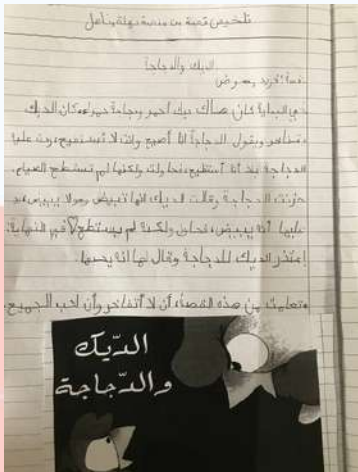 تلخيص قصة من منصة نهلة وناهل
الديك والدجاجة
قصة: فريد معوض
في البداية كان هناك ديك أحمر ودجاجة حمراء، كان الديك
يتفاخر ويقول للدجاجة أنا أصيح وانت لا تستطيع، ردت عليه
الدجاجة بلا أنا أستطيع، فحاولت ولكنها لم تستطع الصياح.
حزنت الدجاجة وقالت للديك انها تبيض وهو لا يبيض، رد
عليها أنه يبيض، فحاول ولكنه لم يستطع في النهاية:
إعتذر الديك للدجاجة وقال لها انه يحبها.
وتعلمت من هذه القصة، أن لا أتفاخر وأن احب الجميع.
الدّيك
والدّجاجة